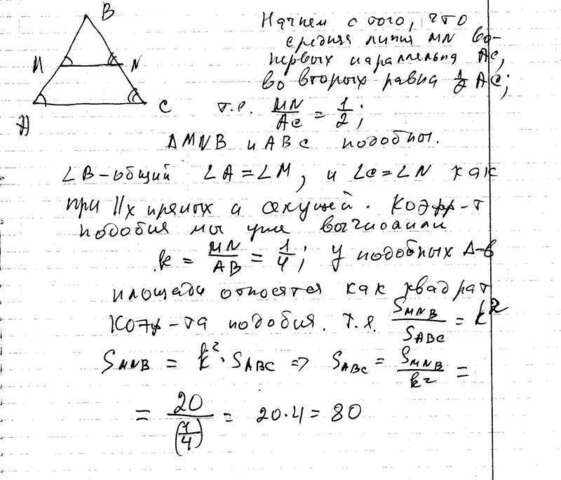 B
M
N
A
C
Начнем с того, что
средняя линия MN во-
первых параллельна AC,
во вторых равна 1/2 AC;
т.е. MN/AC = 1/2;
ΔMNB и ABC подобны.
∠B-общий ∠A=∠M, и ∠C=∠N как
при ||х прямых и секущей. Коэфф-т
подобия мы уже вычислили
k = MN/AB = 1/4; у подобных Δ-в
площади относятся как квадрат
Коэф-та подобия. т.е. S_MNB/S_ABC = k²
S_MNB = k²·S_ABC => S_ABC = S_MNB/k² =
= 20/(1/4) = 20·4 = 80